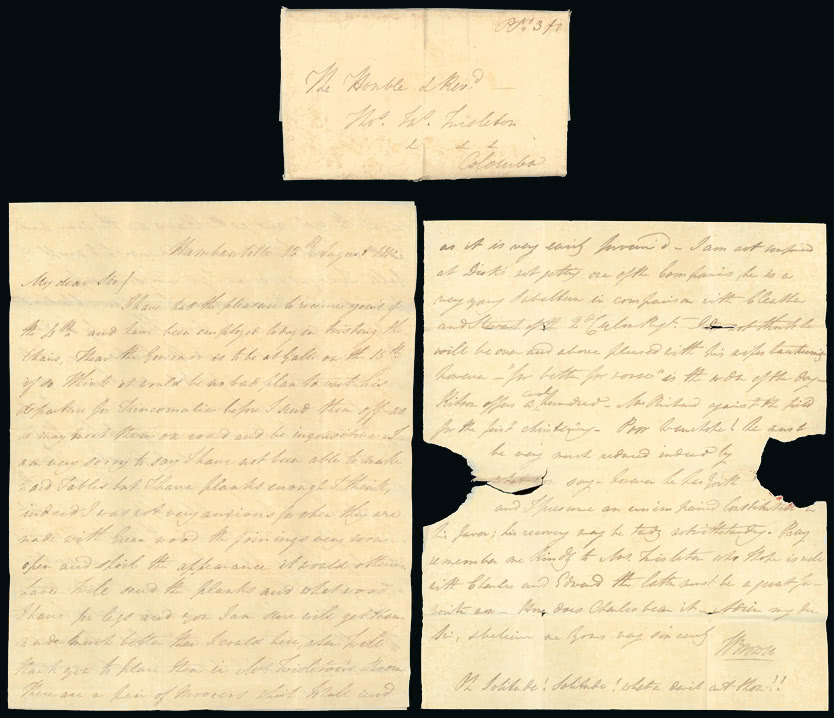 Pd 3 f
The Honble & Revd
Thos. Ms. Twisleton
& & &
Colombo
Hambantotte 12th August
My dear Sir/
I have had the pleasure to receive yours of
the 4th and have been employed today in finishing the
Chairs, I hear the Governor is to be at Galle on the 15th
if so I think it would be no bad plan to wait his
departure for Trincomalie before I send them off as
he may meet them on road and be inquisitive I
am very sorry to say I have not been able to make
Card Tables but I have planks enough I think,
indeed I was not very anxious for when they are
made with green wood the joinings very soon
open and spoil the appearance it would otherwise
have I will send the planks and what wood
I have for legs and you I am sure will get them
made much better than I could here, also I will
thank you to place them in Mrs. Twisleton's Room
There are a pair of which I shall send
as it is very early - I am not surprised
at Dick's not getting one of the Companies, he is a
very young in comparison with
and Stewart of the 2d Ceylon Regt. I do not think he
will be over and above pleased with his wifes
however - "for better for worse" is the order of the day -
offers hundred - against the field
for the first christening - Poor he must
be very much reduced indeed by
say - however he has youth
and I presume an unimpaired Constitution in
his favor; his recovery may be - Pray
remember me kindly to Mrs. Twisleton who I hope is well
with Charles and Edward the latter must be a great fa-
vorite now - How does Charles bear it - Adieu my dear
Sir, & believe me Yours very sincerely
Oh Solitude! Solitude! what a devil art thou!!